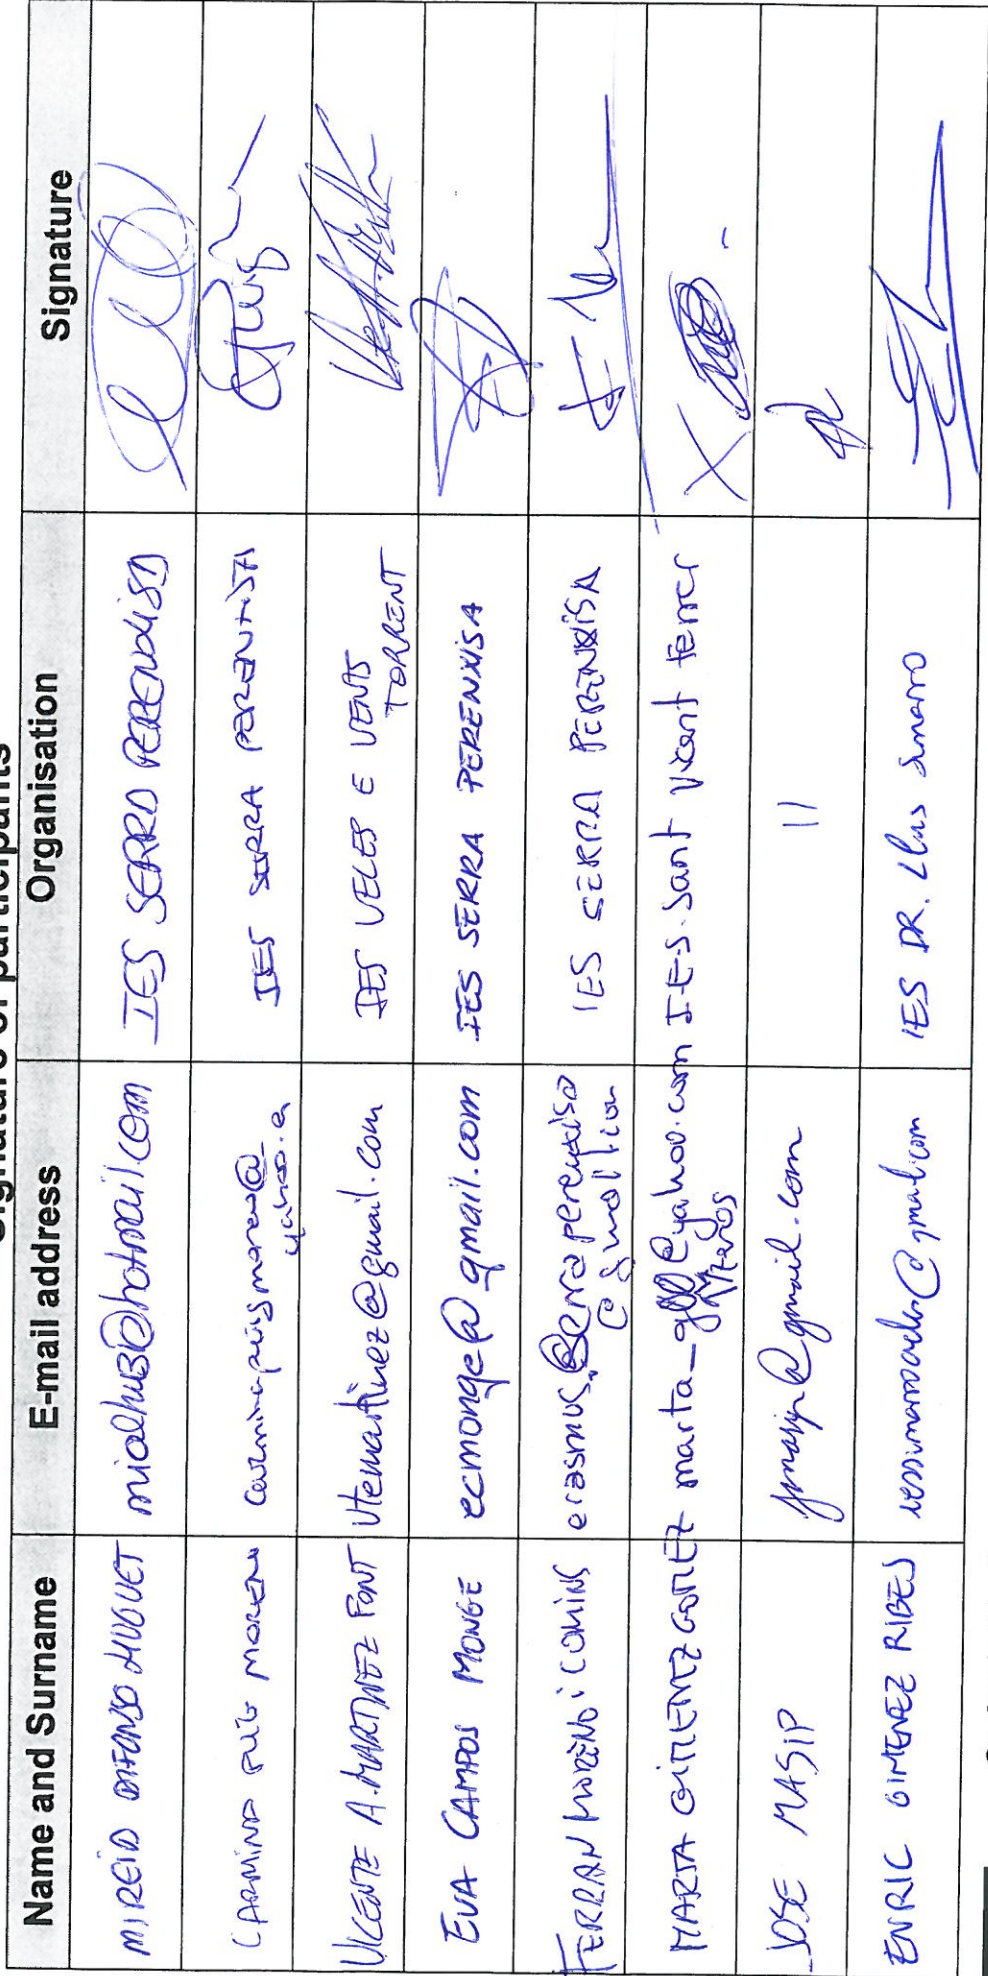 Signature of participants
Name and Surname E-mail address Organisation Signature
MIREIA ALFONSO HUGUET mialhu3@hotmail.com IES SERRA PERENXISA
CARMINA PUIG MORENO carminapuigmoreno@
yahoo.es IES SERRA PERENXISA
VICENTE A. MARTINEZ FONT vtemartinez@gmail.com IES VELES E VENTS
TORRENT
EVA CAMPOS MONGE ecmonge@gmail.com IES SERRA PERENXISA
FERRAN MORENO i COMINS erasmus.serraperenxisa
@gmail.com IES SERRA PERENXISA
MARTA GIMENEZ GOMEZ @yahoo.com I.E.S. Sant Vicent Ferrer
JOSE MASIP jmasip@gmail.com 11
ENRIC GIMENEZ RIBES @gmail.com IES DR. Lluis Simarro